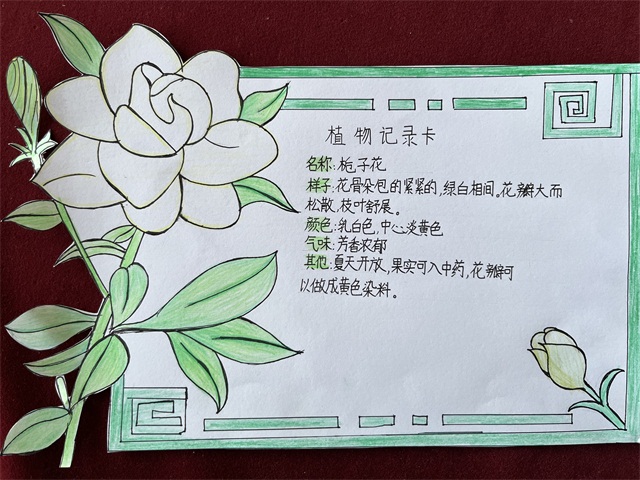 植物记录卡
名称:栀子花
样子:花骨朵包的紧紧的,绿白相间。花瓣大而
松散,枝叶舒展。
颜色:乳白色,中心淡黄色
气味:芳香浓郁
其他:夏天开放,果实可入中药,花瓣可
以做成黄色染料。